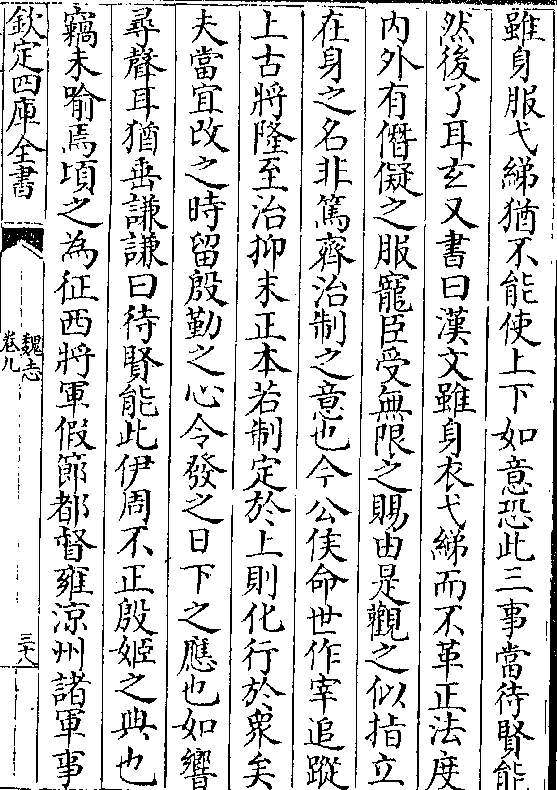 雖身服弋綈猶不能使上下如意恐此三事當待賢能
然後了耳玄又書曰漢文雖身衣弋綈而不革正法度
内外有僭儗之服寵臣受無限之賜由是觀之似指立
在身之名非篤齊治制之意也今公侯命世作宰追蹤
上古將隆至治抑末正本若制定於上則化行於衆矣
夫當宜改之時留殷勤之心令發之日下之應也如響
尋聲耳猶垂謙謙曰待賢能此伊周不正殷姬之典也
竊未喻焉頃之為征西將軍假節都督雍涼州諸軍事
欽定四庫全書
魏志
卷九
三十八